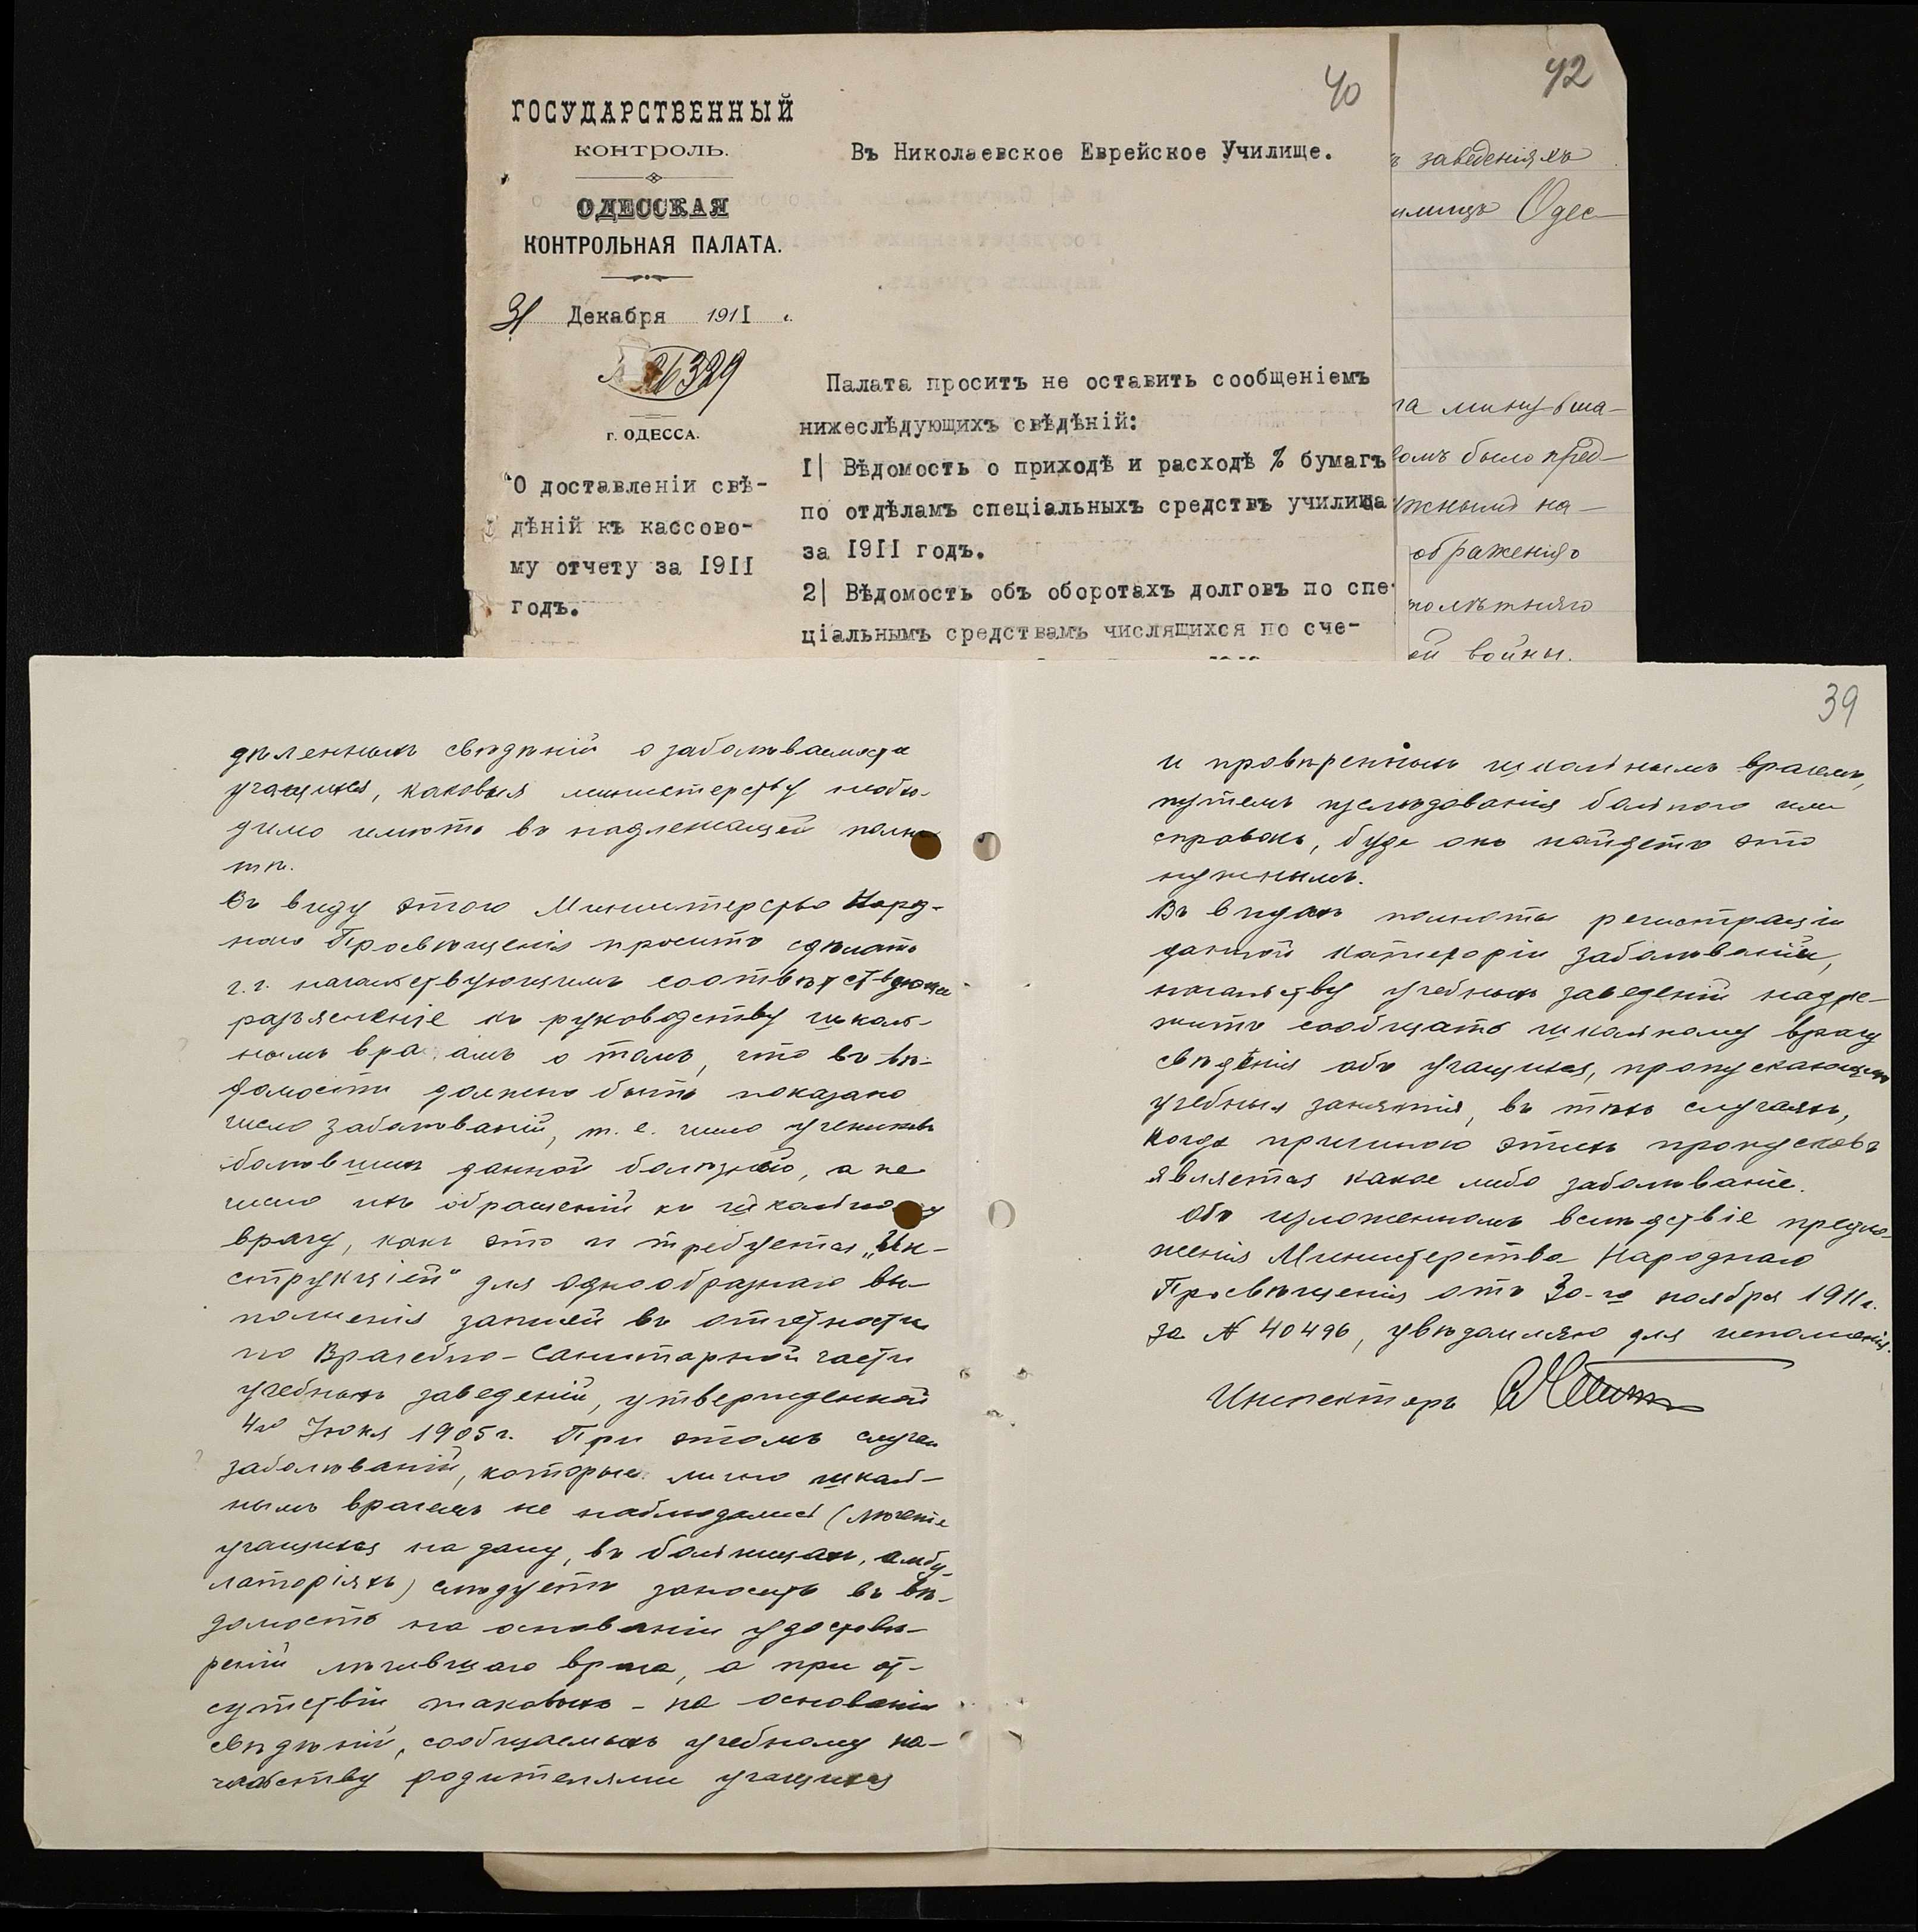 40
42
ГОСУДАРСТВЕННЫЙ
КОНТРОЛЬ.
ОДЕССКАЯ
КОНТРОЛЬНАЯ ПАЛАТА.
31 Декабря 1911 г.
№ 26329
г. ОДЕССА.
О доставленіи свѣ-
дѣній къ кассово-
му отчету за 1911
годъ.
Въ Николаевское Еврейское Училище.
Палата проситъ не оставить сообщеніемъ
нижеслѣдующихъ свѣдѣній:
I| Вѣдомость о приходѣ и расходѣ % бумагъ
по отдѣламъ спеціальныхъ средствъ училища
за 1911 годъ.
2| Вѣдомость объ оборотахъ долговъ по спе-
ціальнымъ средствамъ числящихся по сче-
заведеніяхъ
Одес-
было пред-
ображенія
войны.
дѣленныхъ свѣдѣній о заболѣваемости
учащихся, каковыя министерству необхо-
димо имѣть въ надлежащей полно-
тѣ.
Въ виду этого Министерство Народ-
наго Просвѣщенія проситъ сдѣлать
г.г. начальствующимъ соотвѣтствующее
разъясненіе къ руководству школь-
нымъ врачамъ о томъ, что въ вѣ-
домости должно быть показано
число заболѣваній, т. е. число учениковъ
болѣвшихъ данной болѣзнью, а не
число ихъ обращеній къ школьному
врачу, какъ это и требуется „Ин-
струкціей" для однообразнаго вы-
полненія записей въ отчетности
по Врачебно-Санитарной части
учебныхъ заведеній, утвержденной
4го Іюня 1905 г. При этомъ случаи
заболѣваній, которые лично школь-
нымъ врачемъ не наблюдались (лѣченіе
учащихся на дому, въ больницахъ, амбу-
латоріяхъ) слѣдуетъ заносить въ вѣ-
домость на основаніи удостовѣ-
реній лѣчившаго врача, а при от-
сутствіи таковыхъ - на основаніи
свѣдѣній, сообщаемыхъ учебному на-
чальству родителями учащихся
39
и провѣренныхъ школьнымъ врачемъ,
путемъ изслѣдованія больного или
справокъ, буде онъ найдетъ это
нужнымъ.
Въ видахъ полноты регистраціи
данной категоріи заболѣваній,
начальству учебныхъ заведеній надле-
житъ сообщать школьному врачу
свѣдѣнія объ учащихся, пропускающихъ
учебныя занятія, въ тѣхъ случаяхъ,
когда причиною этихъ пропусковъ
является какое либо заболѣваніе.
Объ изложенномъ вслѣдствіе предло-
женія Министерства Народнаго
Просвѣщенія отъ 30-го ноября 1911 г.
за № 40496, увѣдомляю для исполненія.
Инспекторъ